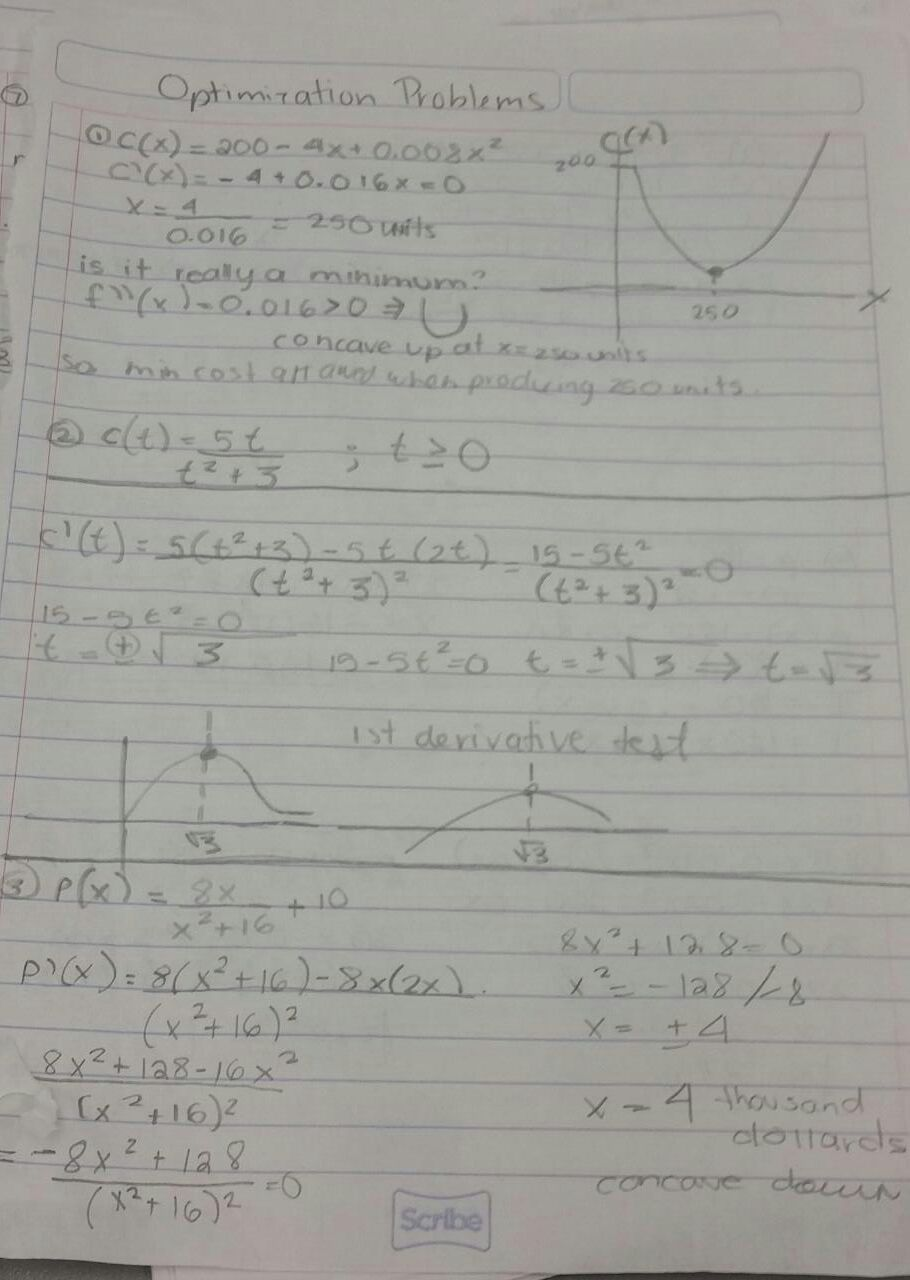 Optimization Problems
① C(x) = 200 - 4x + 0.008x²
C'(x) = - 4 + 0.016x = 0
x = 4/0.016 = 250 units
is it really a minimum?
f''(x) = 0.016 > 0 ⇒ ∪
concave up at x = 250 units
so min cost when producing 250 units.
C(x)
200
250
x
② C(t) = 5t/(t² + 3) ; t ≥ 0
C'(t) = (5(t²+3) - 5t(2t))/(t² + 3)² = (15 - 5t²)/(t² + 3)² = 0
15 - 5t² = 0
t = ±√3
15 - 5t² = 0 t = ±√3 ⇒ t = √3
1st derivative test
√3
√3
③ P(x) = 8x/(x² + 16) + 10
P'(x) = (8(x² + 16) - 8x(2x))/(x² + 16)²
(8x² + 128 - 16x²)/(x² + 16)²
= (-8x² + 128)/(x² + 16)² = 0
8x² + 128 = 0
x² = -128/-8
x = ±4
x = 4 thousand
dollards
concave down
Scribe